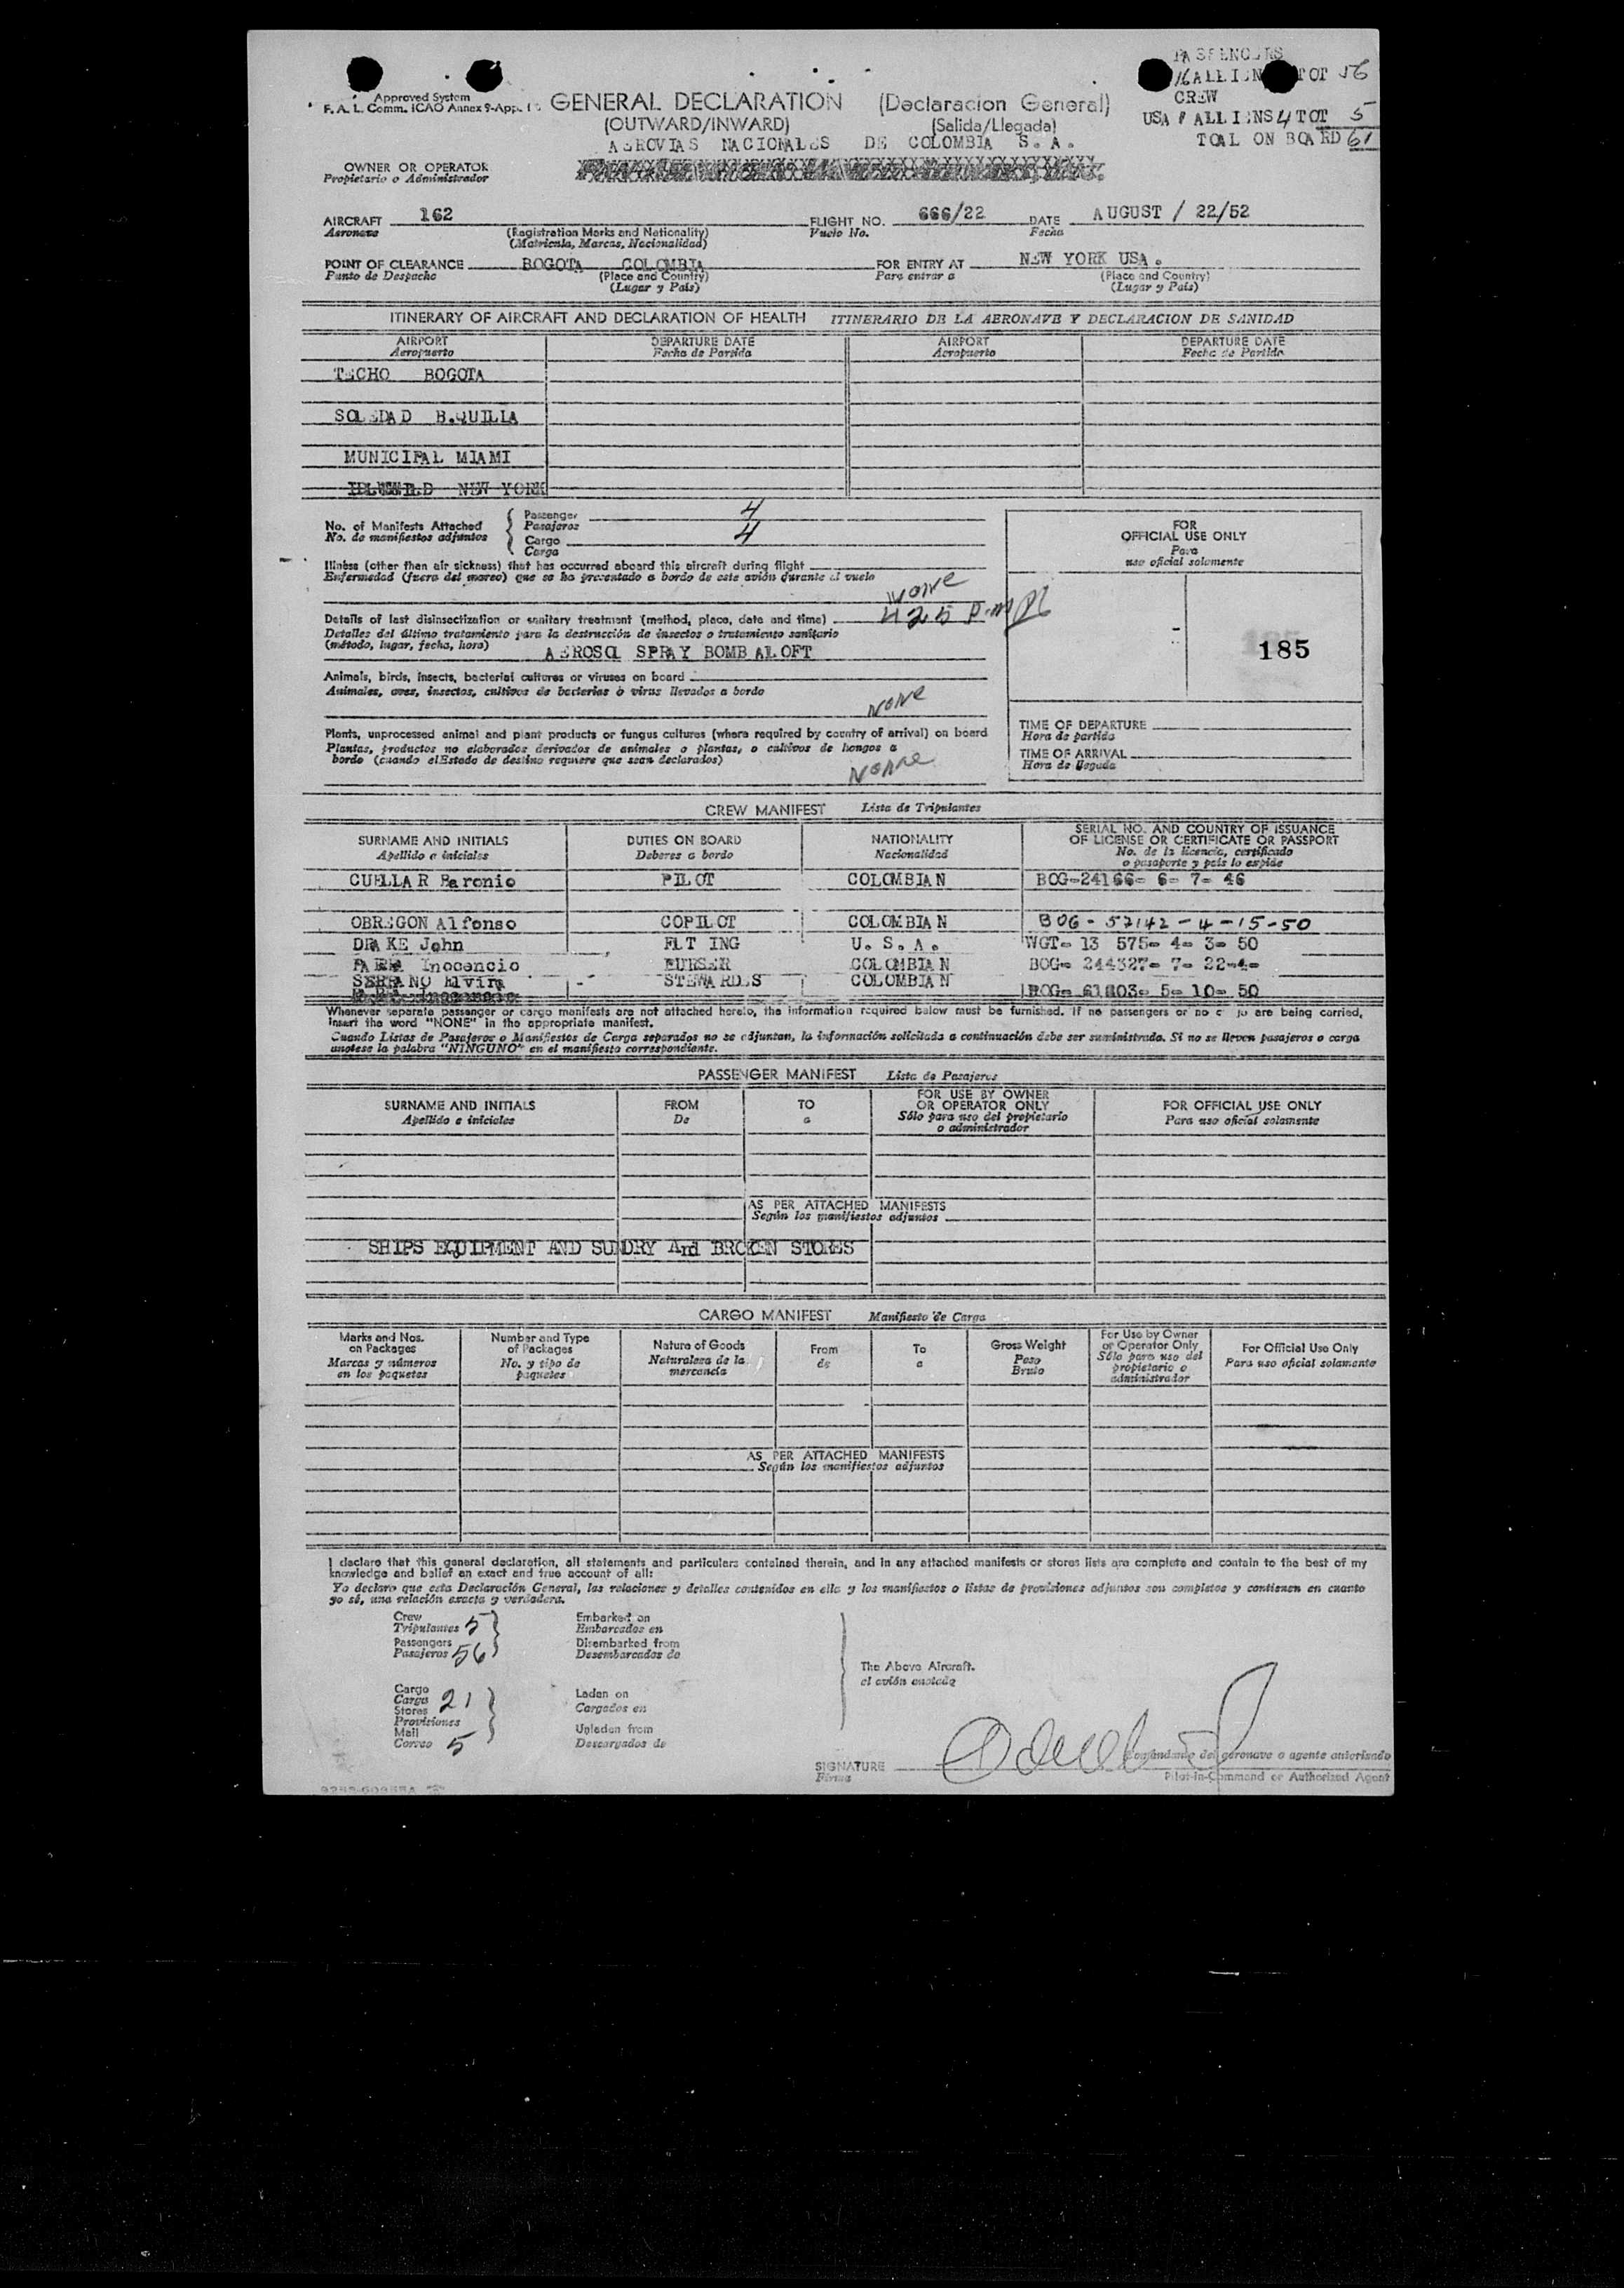 PASSENGERS
16 ALLIEN TOT 56
CREW
USA 1 ALLIENS 4 TOT 5
TOAL ON BOARD 61
Approved System
F. A. L. Comm. ICAO Annex 9-App. 1
GENERAL DECLARATION (Declaracion General)
(OUTWARD/INWARD) (Salida/Llegada)
AEROVIAS NACIONALES DE COLOMBIA S. A.
OWNER OR OPERATOR
Propietario o Administrador
AIRCRAFT 162 FLIGHT NO. 666/22 DATE AUGUST / 22/52
Aeronave (Registration Marks and Nationality) Vuelo No. Fecha
(Matricula, Marcas, Nacionalidad)
POINT OF CLEARANCE BOGOTA COLOMBIA FOR ENTRY AT NEW YORK USA.
Punto de Despacho (Place and Country) Para entrar a (Place and Country)
(Lugar y País) (Lugar y País)
ITINERARY OF AIRCRAFT AND DECLARATION OF HEALTH ITINERARIO DE LA AERONAVE Y DECLARACION DE SANIDAD
AIRPORT DEPARTURE DATE AIRPORT DEPARTURE DATE
Aeropuerto Fecha de Partida Aeropuerto Fecha de Partida
TECHO BOGOTA
SOLEDAD B.QUILLA
MUNICIPAL MIAMI
IDLEWILD NEW YORK
No. of Manifests Attached Passenger 4
No. de manifiestos adjuntos Pasajeros
Cargo 4
Carga
FOR
OFFICIAL USE ONLY
Para
uso oficial solamente
Illness (other than air sickness) that has occurred aboard this aircraft during flight
Enfermedad (fuera del mareo) que se ha presentado a bordo de este avión durante el vuelo
None
Details of last disinsectization or sanitary treatment (method, place, date and time) 425 P.m
Detalles del último tratamiento para la destrucción de insectos o tratamiento sanitario
(método, lugar, fecha, hora) AEROSOL SPRAY BOMB ALOFT
185
Animals, birds, insects, bacterial cultures or viruses on board
Animales, aves, insectos, cultivos de bacterias ó virus llevados a bordo
None
Plants, unprocessed animal and plant products or fungus cultures (where required by country of arrival) on board
Plantas, productos no elaborados derivados de animales o plantas, o cultivos de hongos a
bordo (cuando el Estado de destino requiere que sean declarados)
None
TIME OF DEPARTURE
Hora de partida
TIME OF ARRIVAL
Hora de llegada
CREW MANIFEST Lista de Tripulantes
SURNAME AND INITIALS DUTIES ON BOARD NATIONALITY SERIAL NO. AND COUNTRY OF ISSUANCE
OF LICENSE OR CERTIFICATE OR PASSPORT
Apellido e iniciales Deberes a bordo Nacionalidad No. de la licencia, certificado
o pasaporte y país lo expide
CUELLAR Baronio PILOT COLOMBIAN BOG-24166- 6- 7- 46
OBREGON Alfonso COPILOT COLOMBIAN BOG - 57142 - 4 - 15 - 50
DRAKE John FLT ING U. S. A. WGT- 13 575- 4- 3- 50
PARRA Inocencio PURSER COLOMBIAN BOG- 244327- 7- 22-4-
SERRANO Elvira STEWARDES COLOMBIAN BOG- 61803- 5- 10- 50
Whenever separate passenger or cargo manifests are not attached hereto, the information required below must be furnished. If no passengers or no c jo are being carried,
insert the word "NONE" in the appropriate manifest.
Cuando Listas de Pasajeros o Manifiestos de Carga separados no se adjuntan, la información solicitada a continuación debe ser suministrada. Si no se lleven pasajeros o carga
anotese la palabra "NINGUNO" en el manifiesto correspondiente.
PASSENGER MANIFEST Lista de Pasajeros
SURNAME AND INITIALS FROM TO FOR USE BY OWNER
OR OPERATOR ONLY FOR OFFICIAL USE ONLY
Apellido e iniciales De a Sólo para uso del propietario
o administrador Para uso oficial solamente
AS PER ATTACHED MANIFESTS
Según los manifiestos adjuntos
SHIPS EQUIPMENT AND SUNDRY And BROKEN STORES
CARGO MANIFEST Manifiesto de Carga
Marks and Nos.
on Packages
Marcas y números
en los paquetes
Number and Type
of Packages
No. y tipo de
paquetes
Nature of Goods
Naturaleza de la
mercancía
From
de
To
a
Gross Weight
Peso
Bruto
For Use by Owner
or Operator Only
Sólo para uso del
propietario o
administrador
For Official Use Only
Para uso oficial solamente
AS PER ATTACHED MANIFESTS
Según los manifiestos adjuntos
I declare that this general declaration, all statements and particulars contained therein, and in any attached manifests or stores lists are complete and contain to the best of my
knowledge and belief an exact and true account of all:
Yo declaro que esta Declaración General, las relaciones y detalles contenidos en ella y los manifiestos o listas de provisiones adjuntos son completos y contienen en cuanto
yo sé, una relación exacta y verdadera.
Crew Embarked on
Tripulantes 5 Embarcados en
Passengers Disembarked from
Pasajeros 56 Desembarcados de
The Above Aircraft.
el avión anotado
Cargo Laden on
Carga 21 Cargados en
Stores
Provisiones
Mail Unladen from
Correo 5 Descargados de
SIGNATURE Comandante del aeronave o agente autorizado
Firma Pilot-in-Command or Authorized Agent